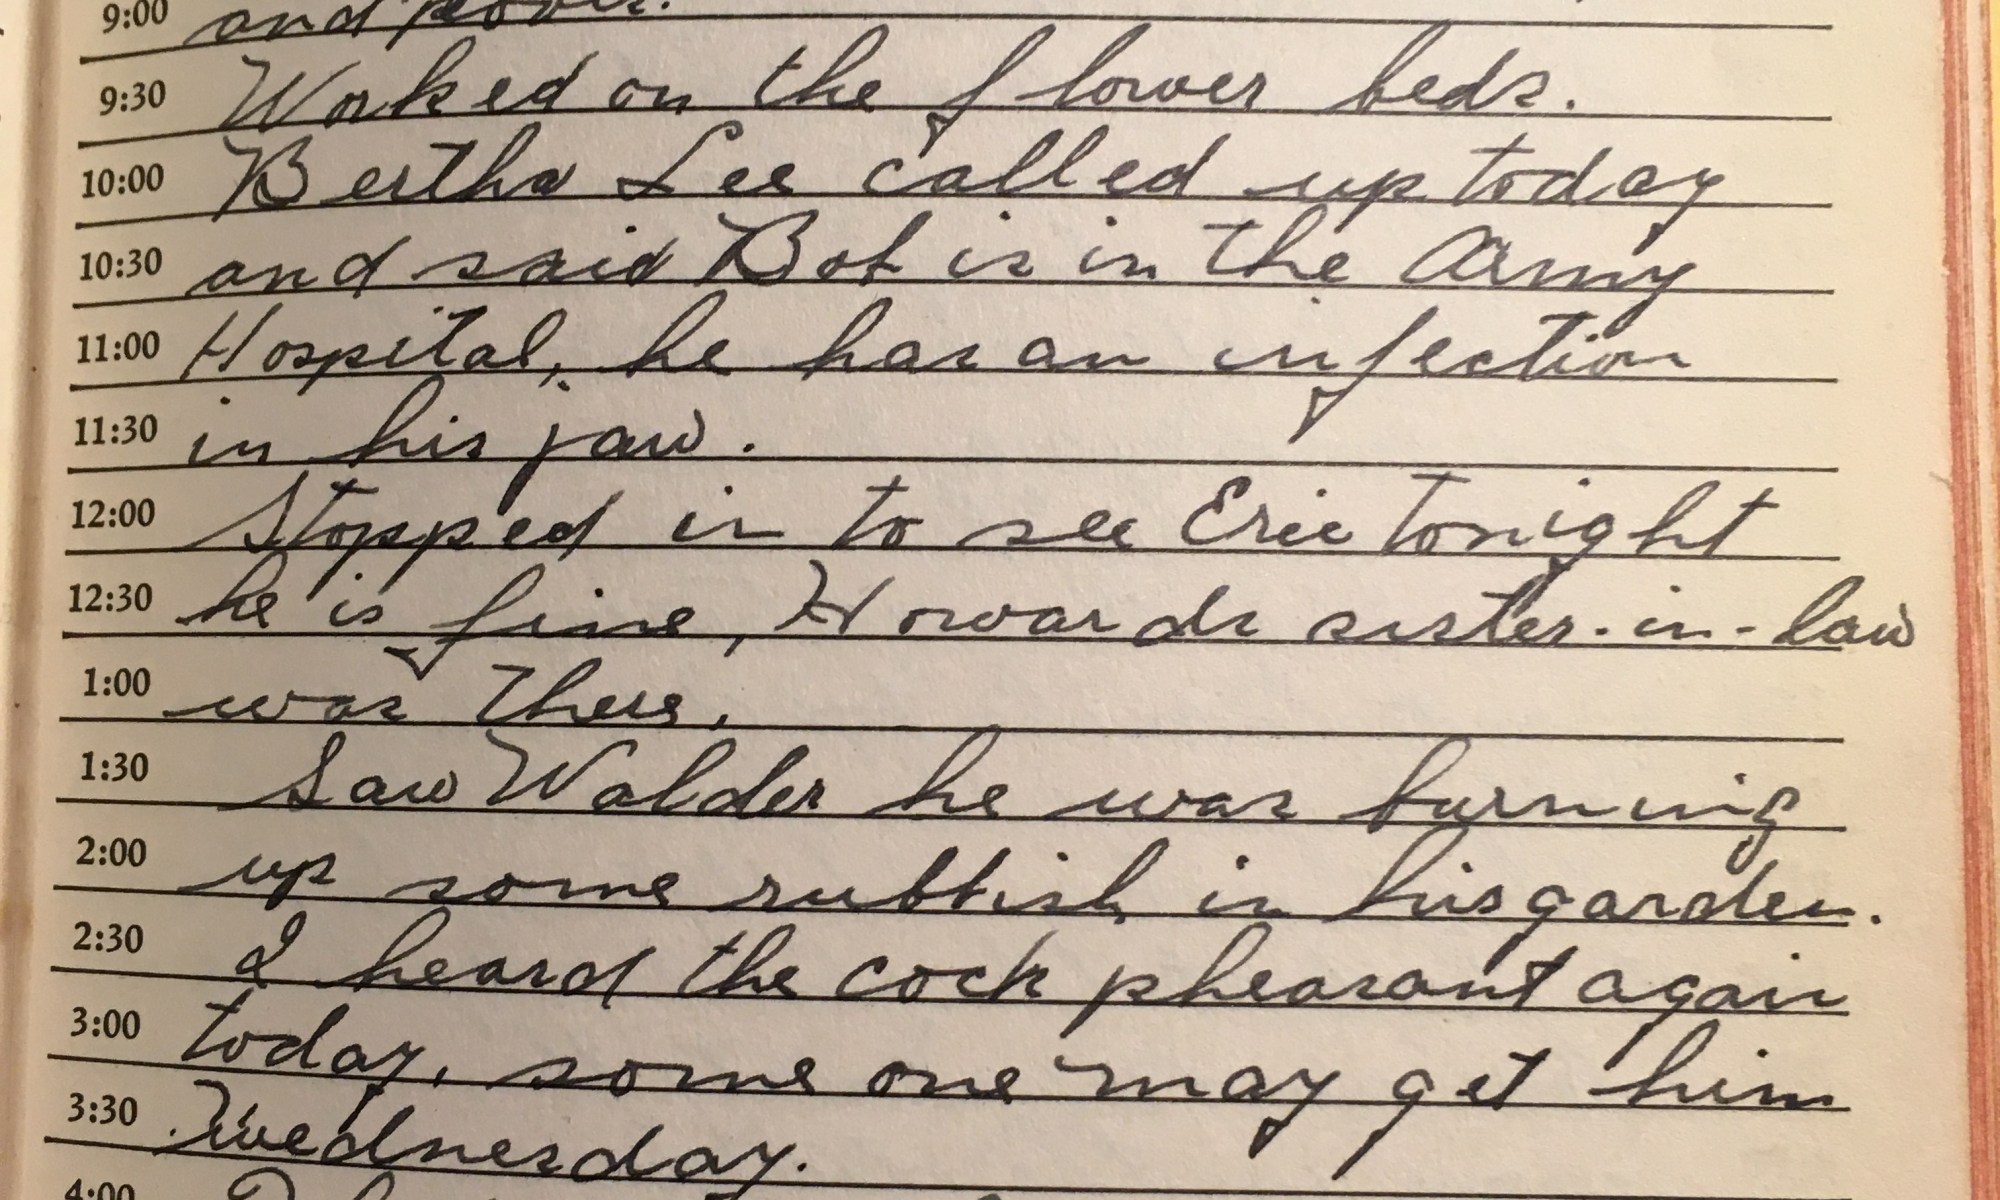 9:00 and
9:30 Worked on the flower beds.
10:00 Bertha Lee called up today
10:30 and said Bob is in the Army
11:00 Hospital, he has an infection
11:30 in his jaw.
12:00 Stopped in to see Eric tonight
12:30 he is fine, Howards sister-in-law
1:00 was there.
1:30 Saw Walder he was burning
2:00 up some rubbish in his garden.
2:30 I heard the cock pheasant again
3:00 today, some one may get him
3:30 Wednesday.
4:00